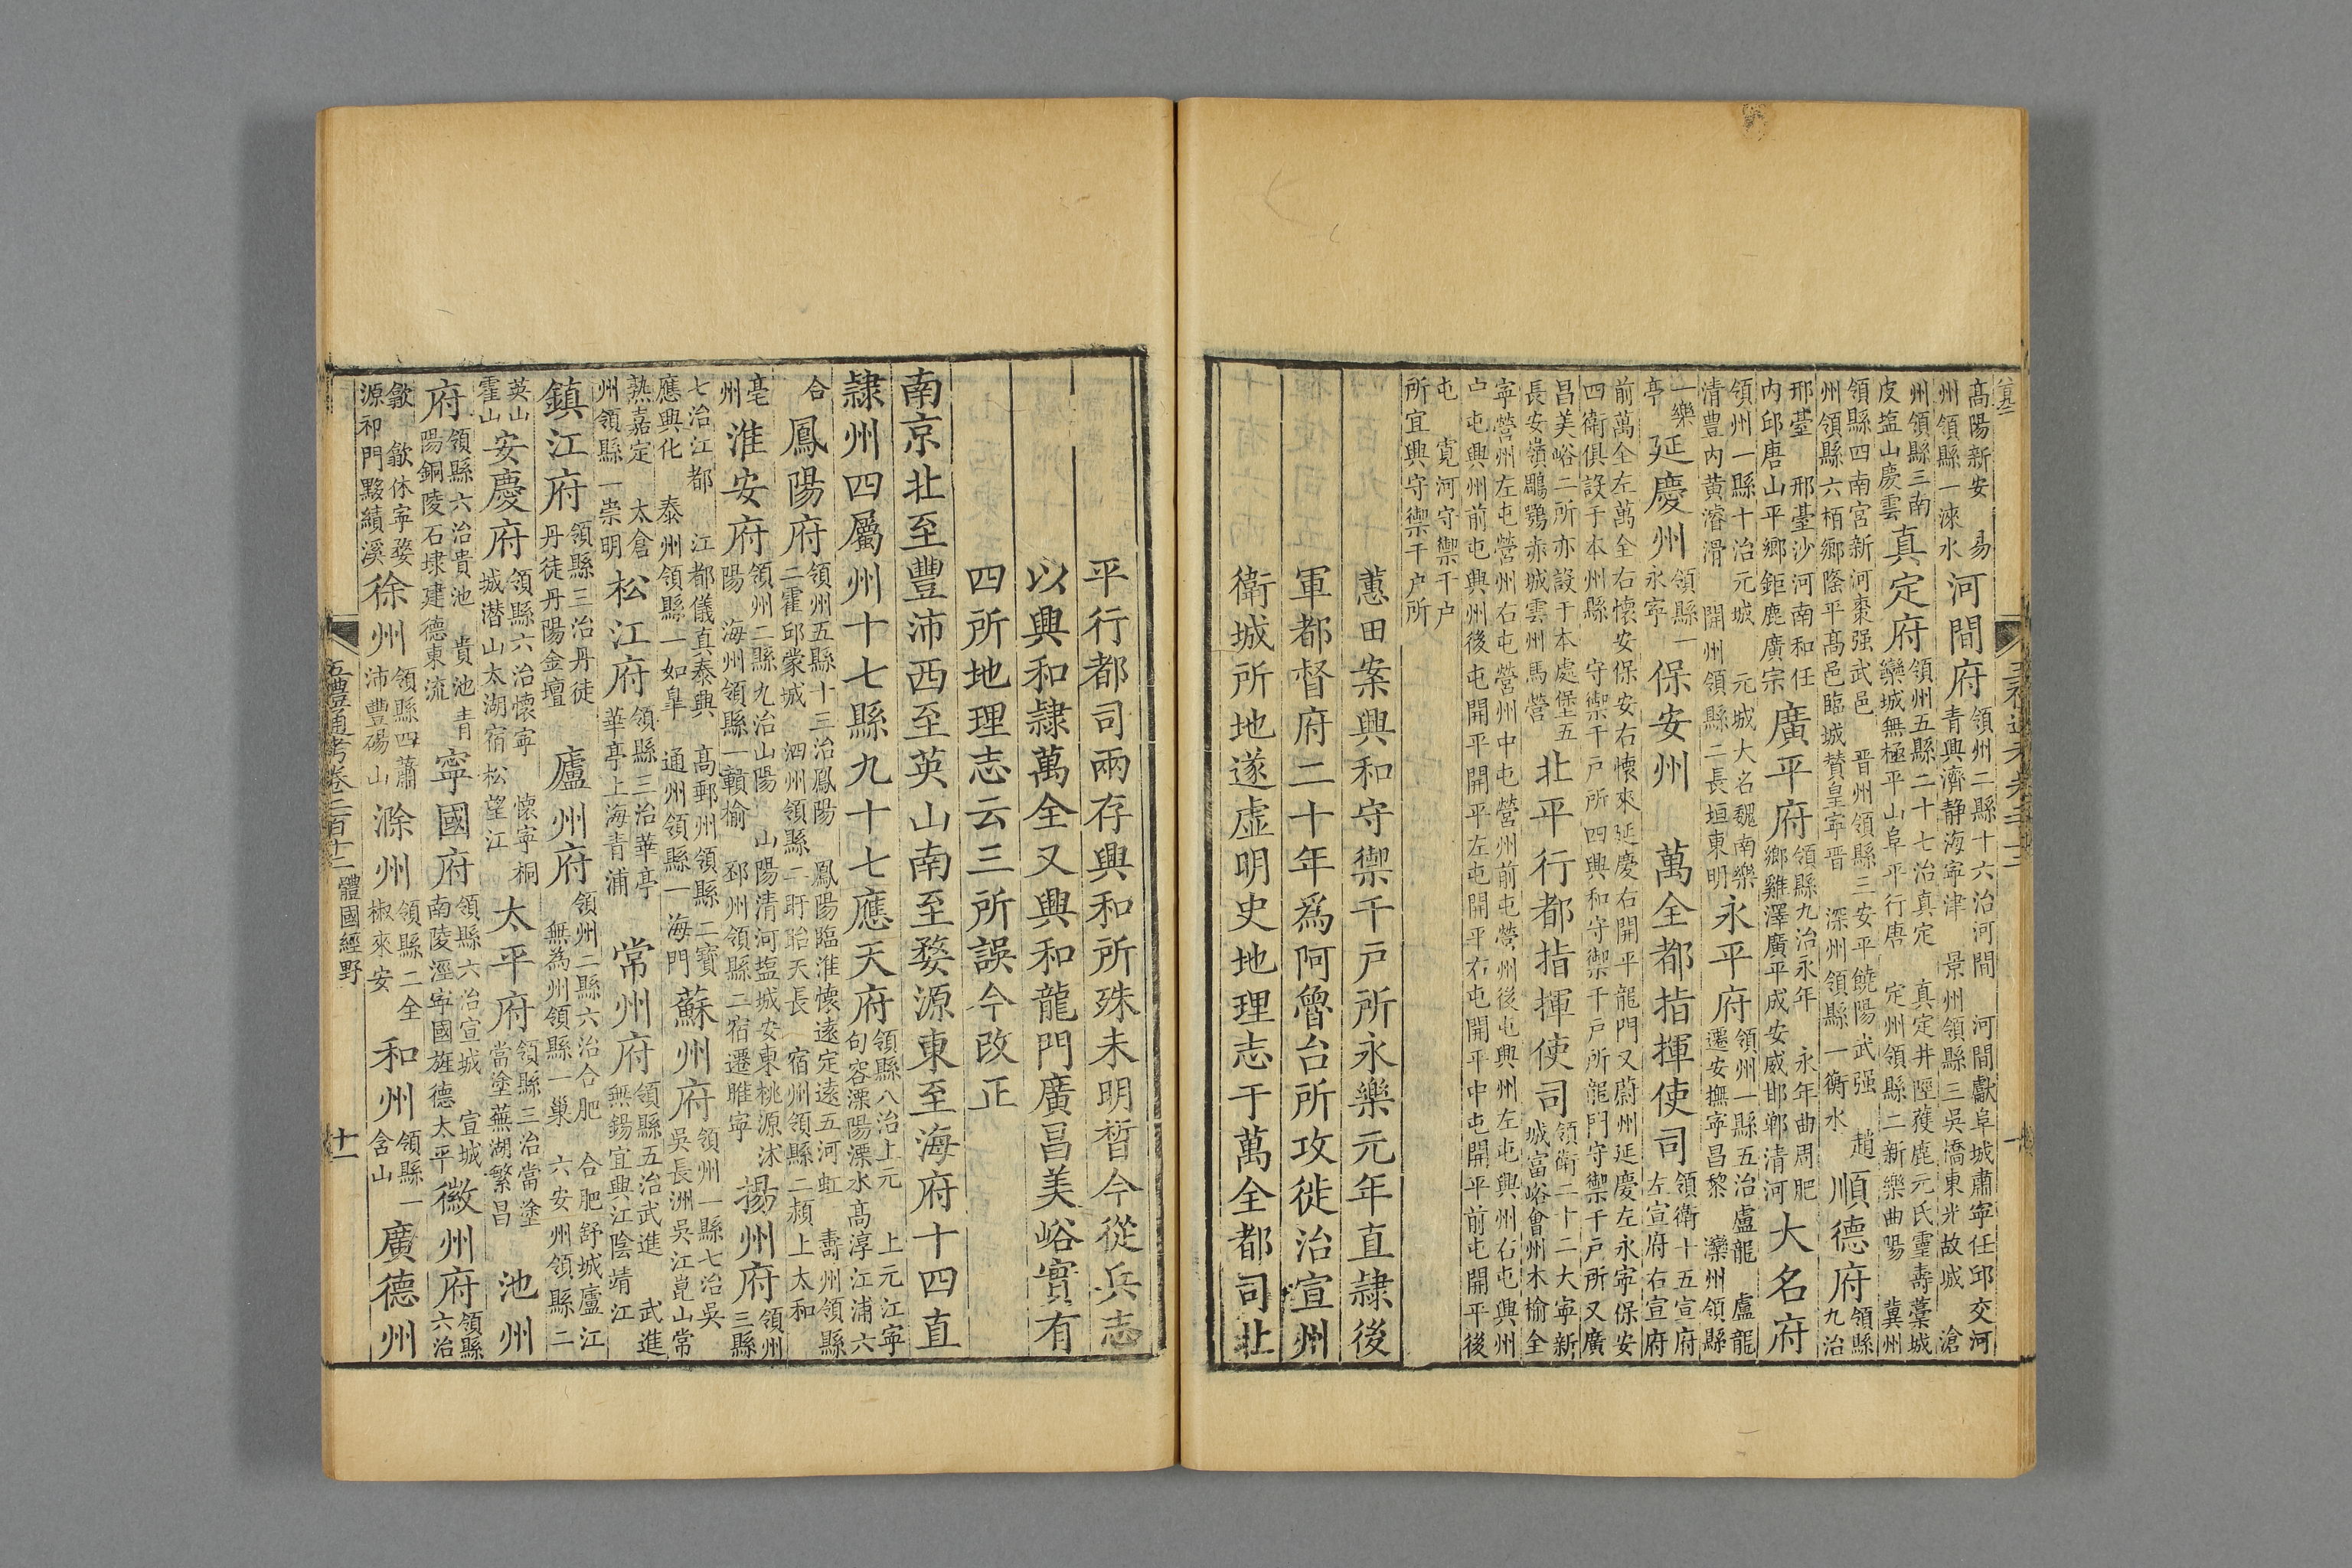 高陽新安　易
州領縣一淶水
河間府
領州二縣十六治河間　河間獻阜城肅寧任邱交河
青興濟静海寧津　景州領縣三吳橋東光故城　滄
州領縣三南
皮塩山慶雲
真定府
領州五縣二十七治真定　真定井陘獲鹿元氏靈壽藁城
欒城無極平山阜平行唐　定州領縣二新樂曲陽　冀州
領縣四南宮新河棗强武邑　晋州領縣三安平饒陽武强　趙
州領縣六栢鄉隆平高邑臨城賛皇寧晋　深州領縣一衡水
順德府
領縣
九治
邢臺　邢臺沙河南和任
内邱唐山平鄉鉅鹿廣宗
廣平府
領縣九治永年　永年曲周肥
鄉雞澤廣平成安威邯鄲清河
大名府
領州一縣十治元城　元城大名魏南樂
清豐内黄濬滑　開州領縣二長垣東明
永平府
領州一縣五治盧龍　盧龍
遷安撫寧昌黎　灤州領縣
一樂
亭
延慶州
領縣一
永寧
保安州　萬全都指揮使司
領衛十五宣府
左宣府右宣府
前萬全左萬全右懷安保安右懷來延慶右開平龍門又蔚州延慶左永寧保安
四衛俱設于本州縣　守禦千戸所四興和守禦千戸所龍門守禦千戸所又廣
昌美峪二所亦設于本處堡五
長安嶺鵰鶚赤城雲州馬營
北平行都指揮使司
領衛二十二大寧新
城富峪會州木榆全
寧營州左屯營州右屯營州中屯營州前屯營州後屯興州左屯興州右屯興州
中屯興州前屯興州後屯開平開平左屯開平右屯開平中屯開平前屯開平後
屯　寛河守禦千户
所宜興守禦千户所
蕙田案興和守禦千戸所永樂元年直隸後
軍都督府二十年爲阿魯台所攻徙治宣州
衛城所地遂虚明史地理志于萬全都司北
平行都司兩存興和所殊未明晳今從兵志
以興和隸萬全又興和龍門廣昌美峪實有
四所地理志云三所誤今改正
南京北至豐沛西至英山南至婺源東至海府十四直
隸州四屬州十七縣九十七應天府
領縣八治上元　上元江寧
句容溧陽溧水高淳江浦六
合
鳳陽府
領州五縣十三治鳳陽　鳳陽臨淮懷遠定遠五河虹　壽州領縣
二霍邱蒙城　泗州領縣二盱眙天長　宿州領縣二頴上太和
亳
州
淮安府
領州二縣九治山陽　山陽清河塩城安東桃源沭
陽　海州領縣一贛榆　邳州領縣二宿遷睢寧
揚州府
領州
三縣
七治江都　江都儀真泰興　高郵州領縣二寳
應興化　泰州領縣一如臯　通州領縣一海門
蘇州府
領州一縣七治吳
吳長洲吳江崑山常
熟嘉定　太倉
州領縣一崇明
松江府
領縣三治華亭
華亭上海青浦
常州府
領縣五治武進　武進
無錫宜興江陰靖江
鎮江府
領縣三治丹徒
丹徒丹陽金壇
廬州府
領州二縣六治合肥　合肥舒城廬江
無為州領縣一巢　六安州領縣二
英山
霍山
安慶府
領縣六治懷寧　懷寧桐
城潜山太湖宿松望江
太平府
領縣三治當塗
當塗蕪湖繁昌
池州
府
領縣六治貴池　貴池青
陽銅陵石埭建德東流
寧國府
領縣六治宣城　宣城
南陵涇寧國旌德太平
徽州府
領縣
六治
歙　歙休寧婺
源祁門黟績溪
徐州
領縣四蕭
沛豐碭山
滁州
領縣二全
椒來安
和州
領縣一
含山
廣德州
五禮通考卷二百十二　體國經野
十一